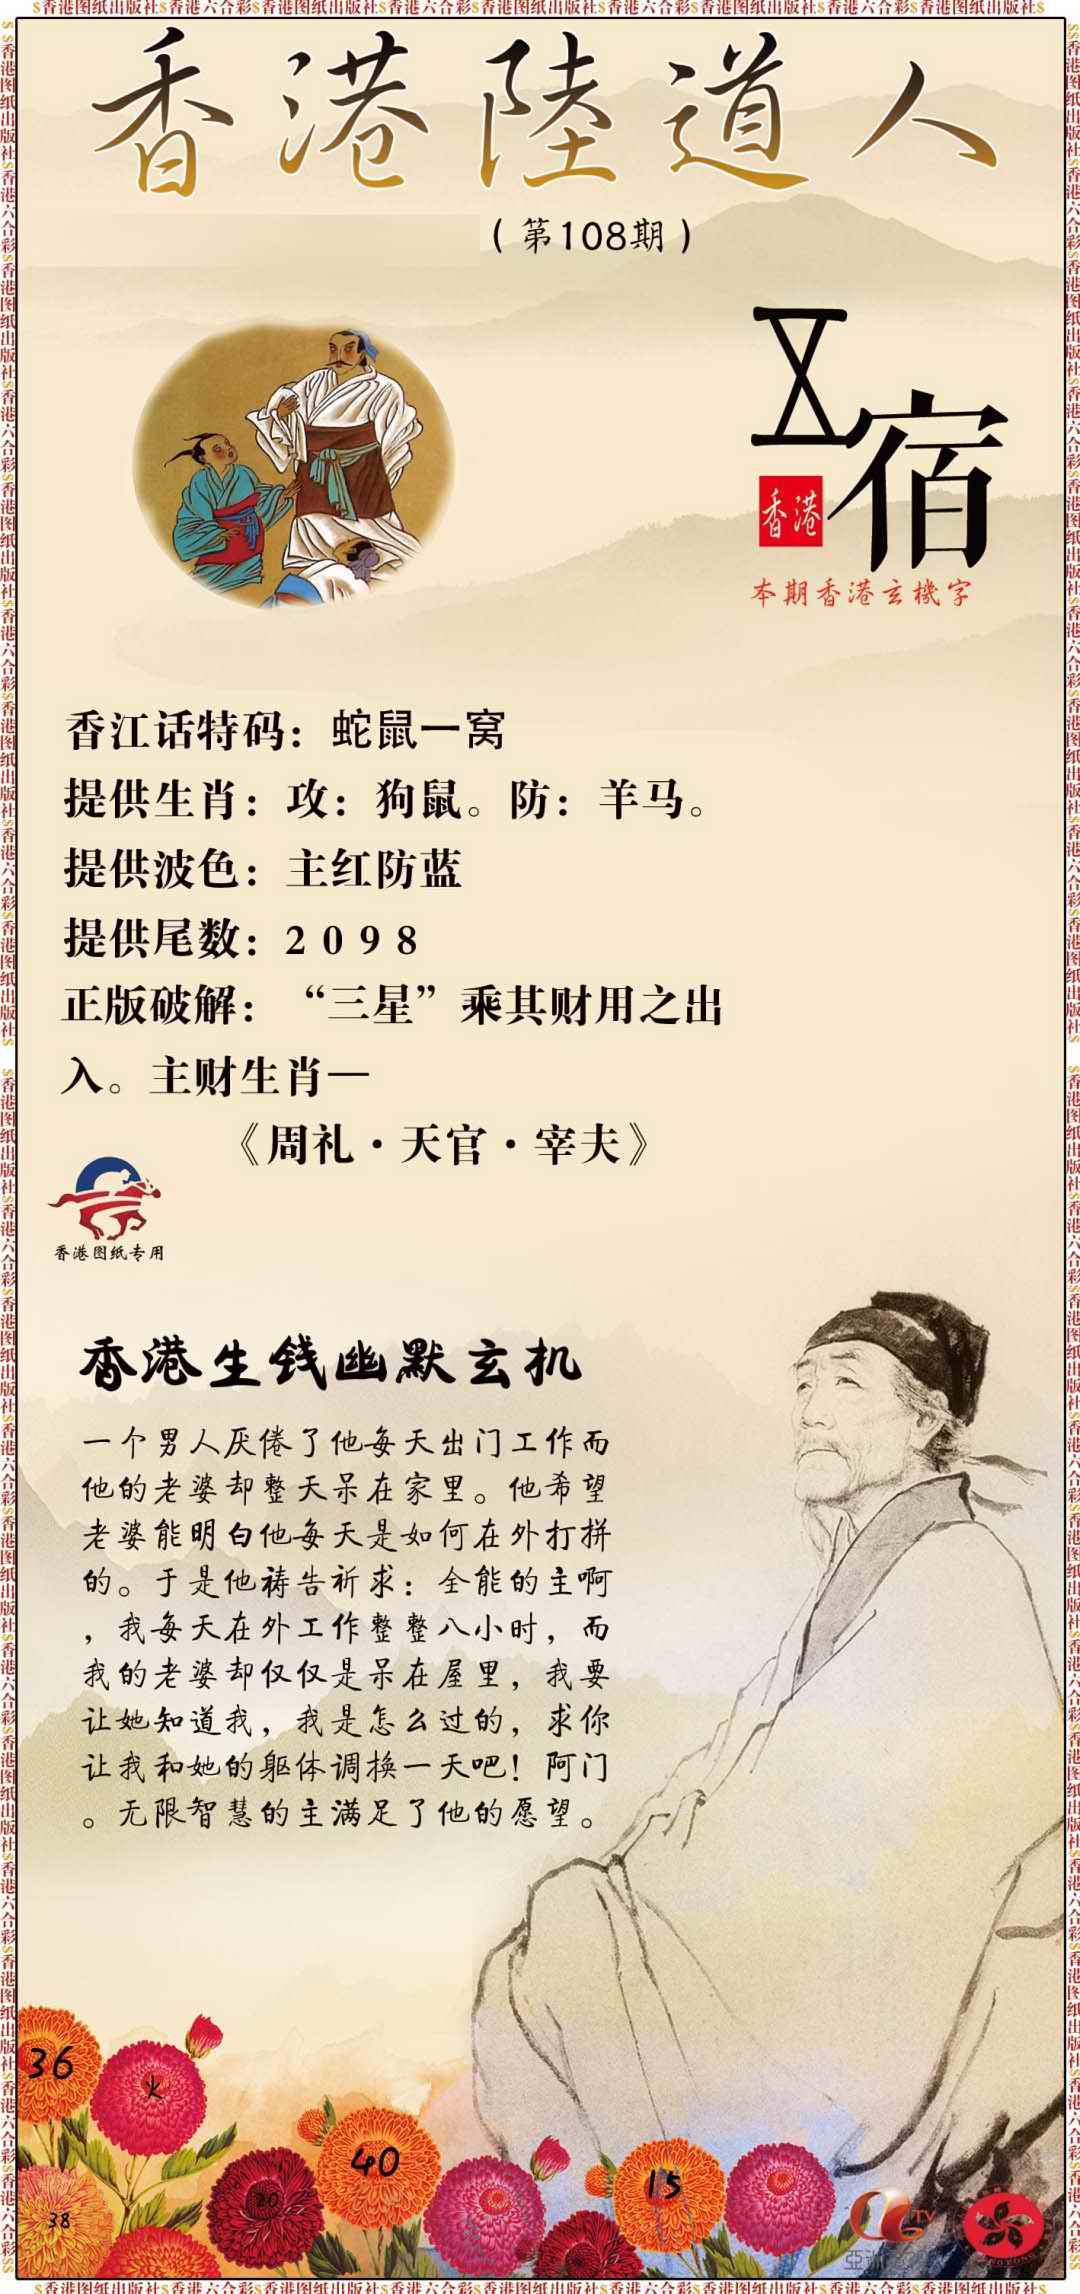 $香港图纸出版社$香港六合彩$香港图纸出版社$香港六合彩$香港图纸出版社$香港六合彩$香港图纸出版社$
香港陸道人
（第108期）
宿
香港
本期香港玄機字
香江话特码：蛇鼠一窝
提供生肖：攻：狗鼠。防：羊马。
提供波色：主红防蓝
提供尾数：2 0 9 8
正版破解：“三星”乘其财用之出
入。主财生肖—
《周礼·天官·宰夫》
香港图纸专用
香港生钱幽默玄机
一个男人厌倦了他每天出门工作而
他的老婆却整天呆在家里。他希望
老婆能明白他每天是如何在外打拼
的。于是他祷告祈求：全能的主啊
，我每天在外工作整整八小时，而
我的老婆却仅仅是呆在屋里，我要
让她知道我，我是怎么过的，求你
让我和她的躯体调换一天吧！阿门
。无限智慧的主满足了他的愿望。
36
火
40
15
20
38
TV
$香港图纸出版社$香港六合彩$香港图纸出版社$香港六合彩$香港图纸出版社$香港六合彩$香港图纸出版社$